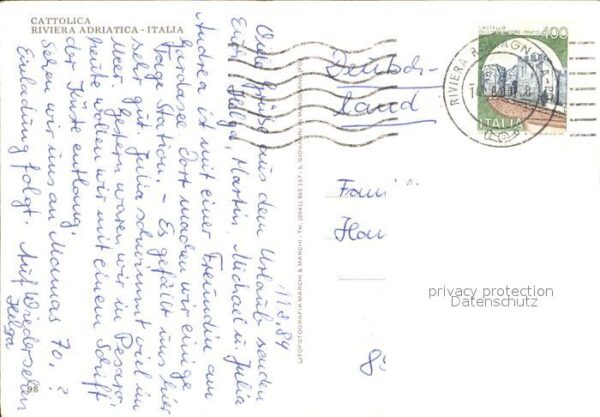 CATTOLICA
RIVIERA ADRIATICA - ITALIA
17.8.84
Viele Grüße aus dem Urlaub senden
Euch Helga, Martin, Michael u. Julia
Andrea ist mit einer Freundin am
Gardasee. Dort machen wir einige
Tage Station. - Es gefällt uns hier
sehr gut. Julia schwimmt viel im
Meer. Gestern waren wir in Pesaro,
heute wollen wir mit einem Schiff
der Küste entlang.
Sehen wir uns an Mamas 70.?
Einladung folgt. Auf Wiedersehen
Helga
98
LITOFOTOGRAFIA MARCHI & MARCHI - Tel. (0541) 955 157 - S. GIOVANNI IN MARIGNANO (FO)
Deutsch-
land
Fami
Han
85
RIVIERA ROMAGN
CASTELLO
DELL'IMPERATORE - PRATO
400
ITALIA
privacy protection
Datenschutz